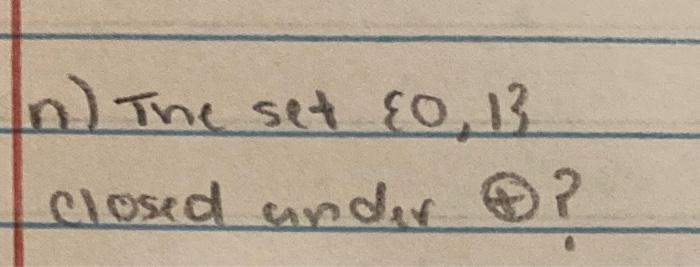 n) The set {0, 1}
closed under ⊕?